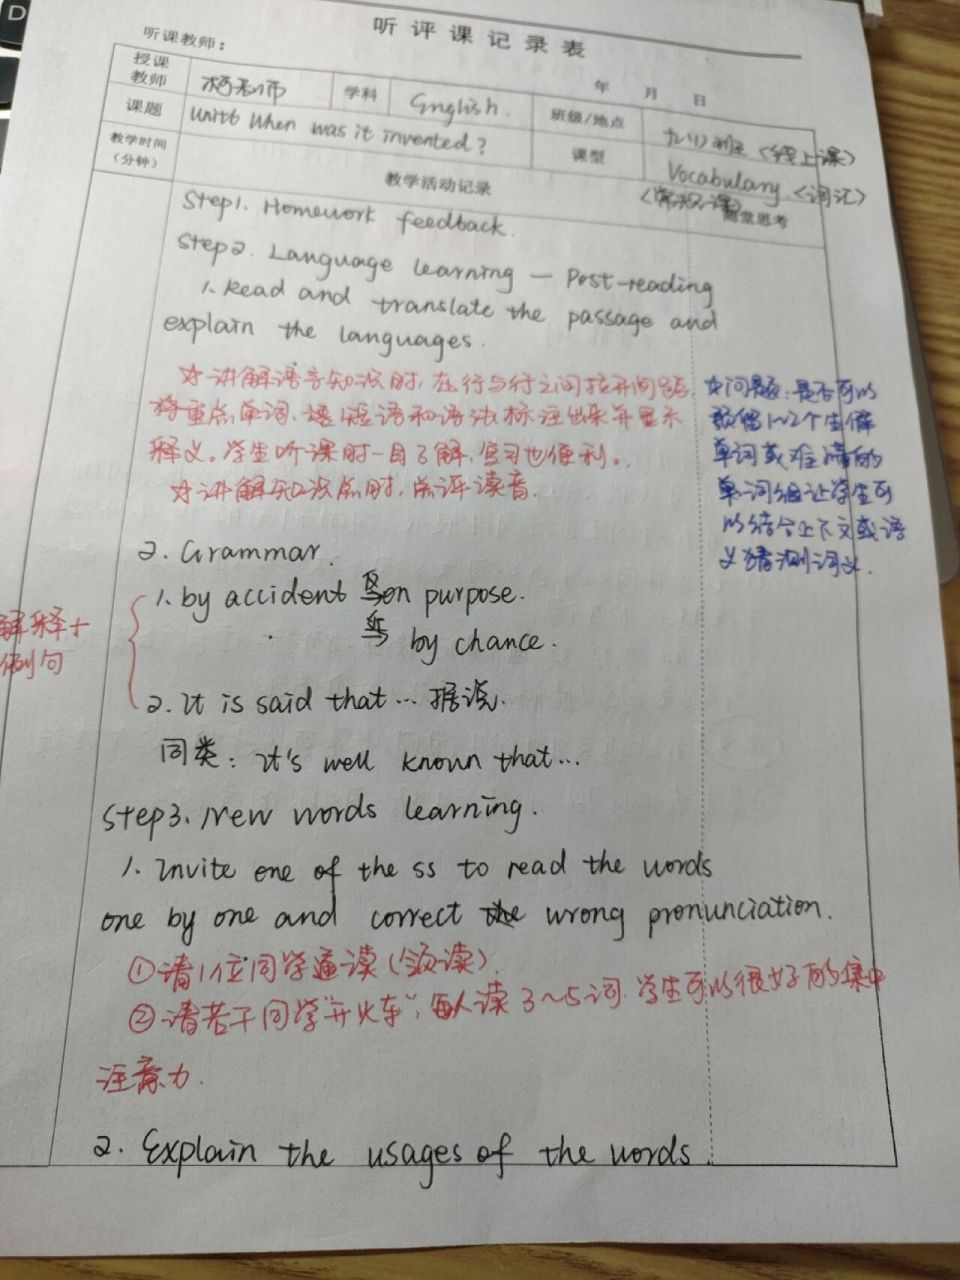 听评课记录表
听课教师：
年 月 日
授课教师 杨老师 学科 English. 班级/地点 九(1)班 <线上课>
课题 Unit6 When was it invented? 课型 Vocabulary <词汇>
教学时间（分钟） 教学活动记录 随堂思考
Step1. Homework feedback.
Step2. Language learning — Post-reading
1. Read and translate the passage and
explain the languages.
☆讲解语言知识时，在行与行之间拉开间距，
将重点单词、短语和语法标注出来并显示
释义。学生听课时一目了解，复习也便利。
☆讲解知识点时，点评读音.
☆问题：是否可以
裁偶1~2个生僻
单词或难懂的
单词组让学生可
以结合上下文或语
义猜测词义.
2. Grammar.
1. by accident 反on purpose.
by chance.
解释+
例句
2. It is said that... 据说.
同类：It's well known that...
Step3. New words learning.
1. Invite one of the ss to read the words
one by one and correct the wrong pronunciation.
①请1位同学通读(领读).
②请若干同学"开火车"，每人读3~5词. 学生可以很好的集中
注意力.
2. Explain the usages of the words.